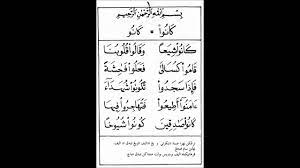 بِسْمِ اللهِ الرَّحْمٰنِ الرَّحِيْمِ
كَانُوْا * كَانُو
كَانُوْا شِيَعًا وَقَالُوْا قُلُوْبُنَا
قَامُوْا كُسَالَى فَعَلُوْا فَحِشَةً
فَإِذَا سَجَدُوْا تَكُوْنُوْا شُهَدَآءَ
اٰمَنُوْا أَطِيْعُوا فَتُهَاجِرُوْا فِيْهَا
كَانُوْا صٰدِقِيْنَ كُوْنُوْا شُيُوْخًا